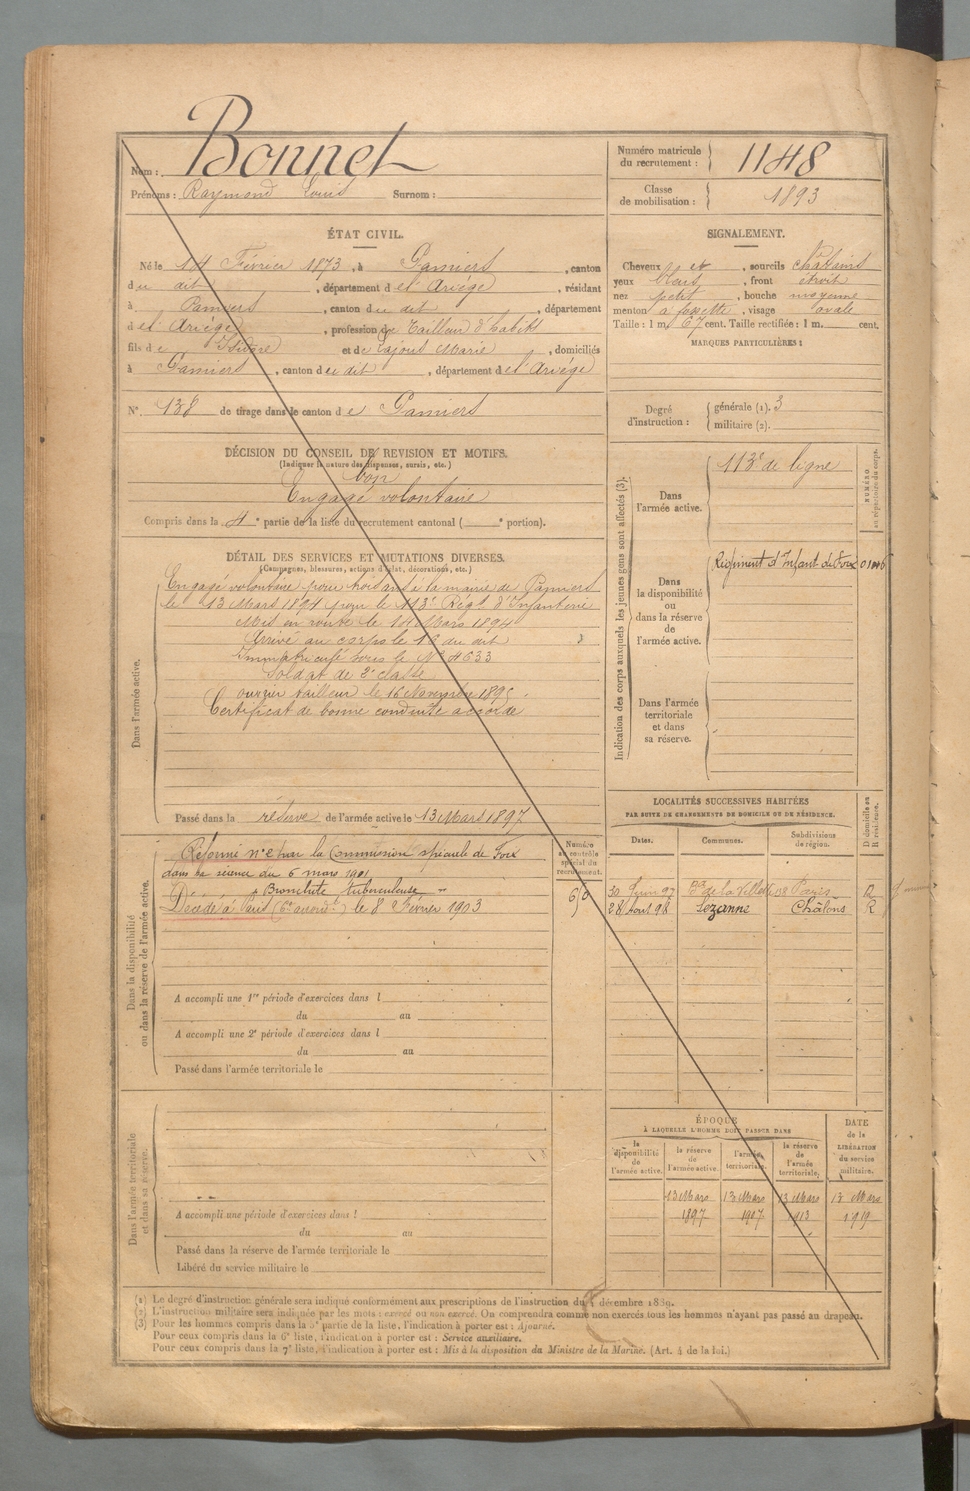 Nom : Bonnet
Prénoms : Raymond Louis Surnom :
Numéro matricule du recrutement : 1148
Classe de mobilisation : 1893
ÉTAT CIVIL.
Né le 14 Février 1873, à Pamiers, canton
du dit, département de l'Ariège, résidant
à Pamiers, canton du dit, département
de l'Ariège, profession de tailleur d'habits
fils de Isidore et de Lajous Marie, domiciliés
à Pamiers, canton du dit, département de l'Ariège
N° 138 de tirage dans le canton de Pamiers
SIGNALEMENT.
Cheveux et, sourcils châtains
yeux, front étroit
nez petit, bouche moyenne
menton à fossette, visage ovale
Taille : 1 m. 67 cent. Taille rectifiée : 1 m. cent.
MARQUES PARTICULIÈRES :
Degré d'instruction : générale (1). 3
militaire (2).
DÉCISION DU CONSEIL DE REVISION ET MOTIFS.
(Indiquer la nature des dispenses, sursis, etc.)
bon
Engagé volontaire
Compris dans la 4e partie de la liste du recrutement cantonal ( e portion).
DÉTAIL DES SERVICES ET MUTATIONS DIVERSES.
(Campagnes, blessures, actions d'éclat, décorations, etc.)
Dans l'armée active.
Engagé volontaire pour trois ans à la mairie de Pamiers
le 13 Mars 1894 pour le 113e Régt d'Infanterie
Mis en route le 14 Mars 1894
Arrivé au corps le 18 du dit
Immatriculé sous le N° 4633
Soldat de 2e classe
ouvrier tailleur le 16 Novembre 1895.
Certificat de bonne conduite accordé
Passé dans la réserve de l'armée active le 13 Mars 1897
Indication des corps auxquels les jeunes gens sont affectés (3).
NUMÉRO au répertoire du corps.
Dans l'armée active.
113e de ligne
Dans la disponibilité ou dans la réserve de l'armée active.
Régiment d'Infant. de Foix
Dans l'armée territoriale et dans sa réserve.
Dans la disponibilité ou dans la réserve de l'armée active.
Numéro au contrôle spécial du recrutement
Réformé n° 2 par la Commission spéciale de Foix
dans sa séance du 6 mars 1901
Bronchite tuberculeuse
Décédé à Paris (6e arrondt) le 8 Février 1903
A accompli une 1re période d'exercices dans l
du au
A accompli une 2e période d'exercices dans l
du au
Passé dans l'armée territoriale le
LOCALITÉS SUCCESSIVES HABITÉES
PAR SUITE DE CHANGEMENTS DE DOMICILE OU DE RÉSIDENCE.
Dates. Communes. Subdivisions de région. D domicile ou R résidence.
30 Juin 97 de la Villette Paris D
28 Aout 98 Sezanne Châlons R
Dans l'armée territoriale et dans sa réserve.
A accompli une période d'exercices dans l
du au
Passé dans la réserve de l'armée territoriale le
Libéré du service militaire le
ÉPOQUE
À LAQUELLE L'HOMME DOIT PASSER DANS
la disponibilité de l'armée active.
la réserve de l'armée active.
l'armée territoriale.
la réserve de l'armée territoriale.
DATE de la LIBÉRATION du service militaire.
13 Mars 13 Mars 13 Mars 13 Mars
1897 1907 1913 1919
(1) Le degré d'instruction générale sera indiqué conformément aux prescriptions de l'instruction du 4 décembre 1889.
(2) L'instruction militaire sera indiquée par les mots : exercé ou non exercé. On comprendra comme non exercés tous les hommes n'ayant pas passé au drapeau.
(3) Pour les hommes compris dans la 5e partie de la liste, l'indication à porter est : Ajourné.
Pour ceux compris dans la 6e liste, l'indication à porter est : Service auxiliaire.
Pour ceux compris dans la 7e liste, l'indication à porter est : Mis à la disposition du Ministre de la Marine. (Art. 4 de la loi.)